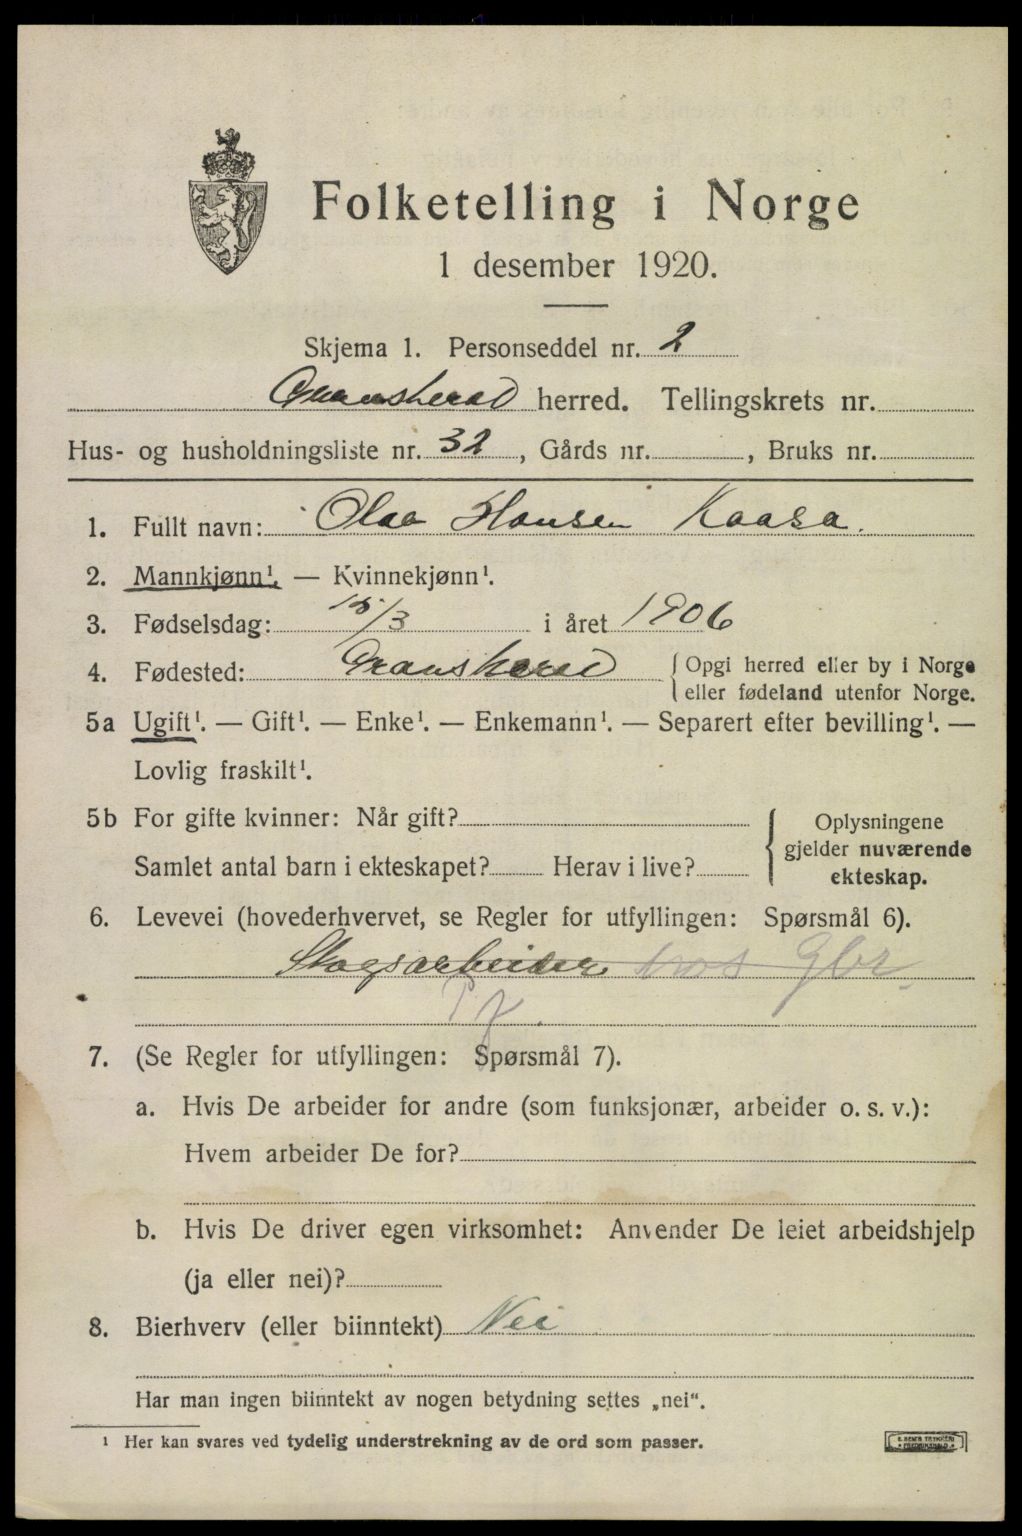 Folketelling i Norge
1 desember 1920.
Skjema 1. Personseddel nr. 2
Gransherad herred. Tellingskrets nr.
Hus- og husholdningsliste nr. 32, Gårds nr. , Bruks nr.
1. Fullt navn: Olaa Hansen Kaasa.
2. Mannkjønn¹. — Kvinnekjønn¹.
3. Fødselsdag: 15/3 i året 1906
4. Fødested: Gransherad {Opgi herred eller by i Norge
eller fødeland utenfor Norge.
5a Ugift¹. — Gift¹. — Enke¹. — Enkemann¹. — Separert efter bevilling¹. —
Lovlig fraskilt¹.
5b For gifte kvinner: Når gift? { Oplysningene
gjelder nuværende
Samlet antal barn i ekteskapet? Herav i live? ekteskap.
6. Levevei (hovederhvervet, se Regler for utfyllingen: Spørsmål 6).
Skogsarbeider hos Gbr.
7. (Se Regler for utfyllingen: Spørsmål 7).
a. Hvis De arbeider for andre (som funksjonær, arbeider o. s. v.):
Hvem arbeider De for?
b. Hvis De driver egen virksomhet: Anvender De leiet arbeidshjelp
(ja eller nei)?
8. Bierhverv (eller biinntekt) Nei
Har man ingen biinntekt av nogen betydning settes „nei“.
¹ Her kan svares ved tydelig understrekning av de ord som passer.